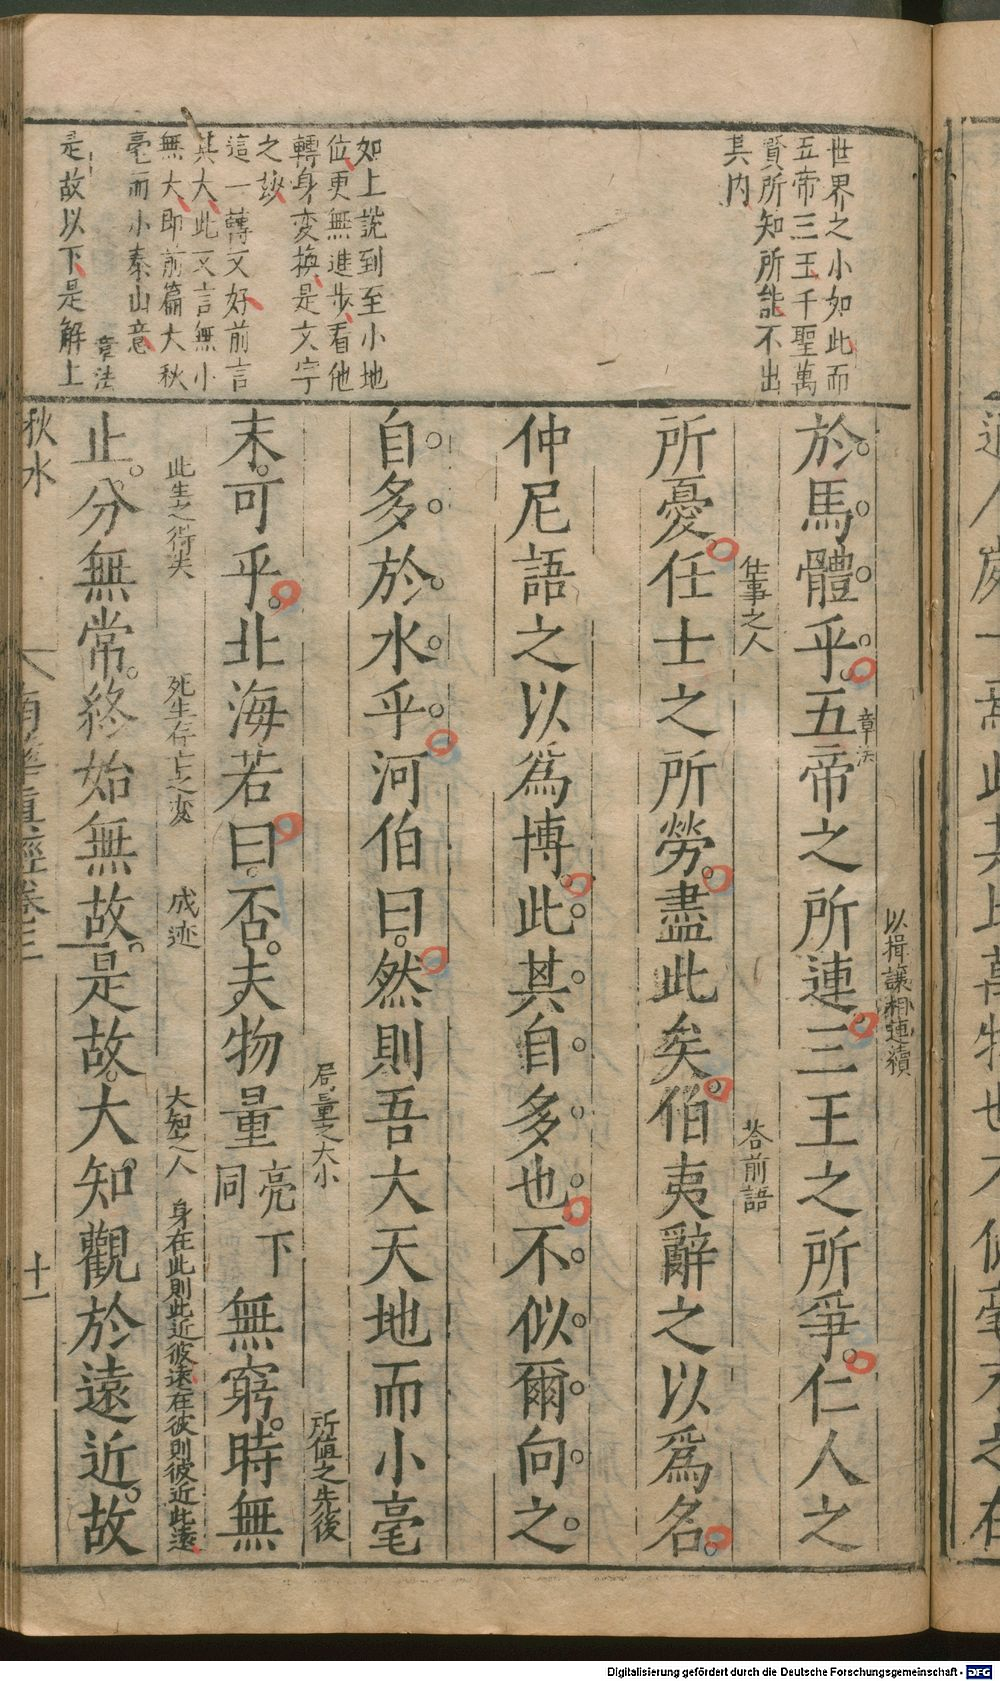 世界之小如此而
五帝三王千聖萬
賢所知所能不出
其内
如上說到至小地
位更無進步看他
轉身変換是文字
之妙
這一轉又好前言
其大此又言無小
無大即前篇大秋
毫而小泰山意
章法
是故以下是解上
以揖讓相連續
於馬體乎五帝之所連三王之所爭仁人之
章法
仕事之人
荅前語
所憂任士之所勞盡此矣伯夷辭之以爲名
仲尼語之以爲博此其自多也不似爾向之
自多於水乎河伯曰然則吾大天地而小毫
局量之大小
所值之先後
末可乎北海若曰否夫物量亮下同無窮時無
此生之得失
死生存亡之変
成迹
大知之人
身在此則此近彼遠在彼則彼近此遠
止分無常終始無故是故大知觀於遠近故
秋水
南華真經卷三
十一
Digitalisierung gefördert durch die Deutsche Forschungsgemeinschaft - DFG